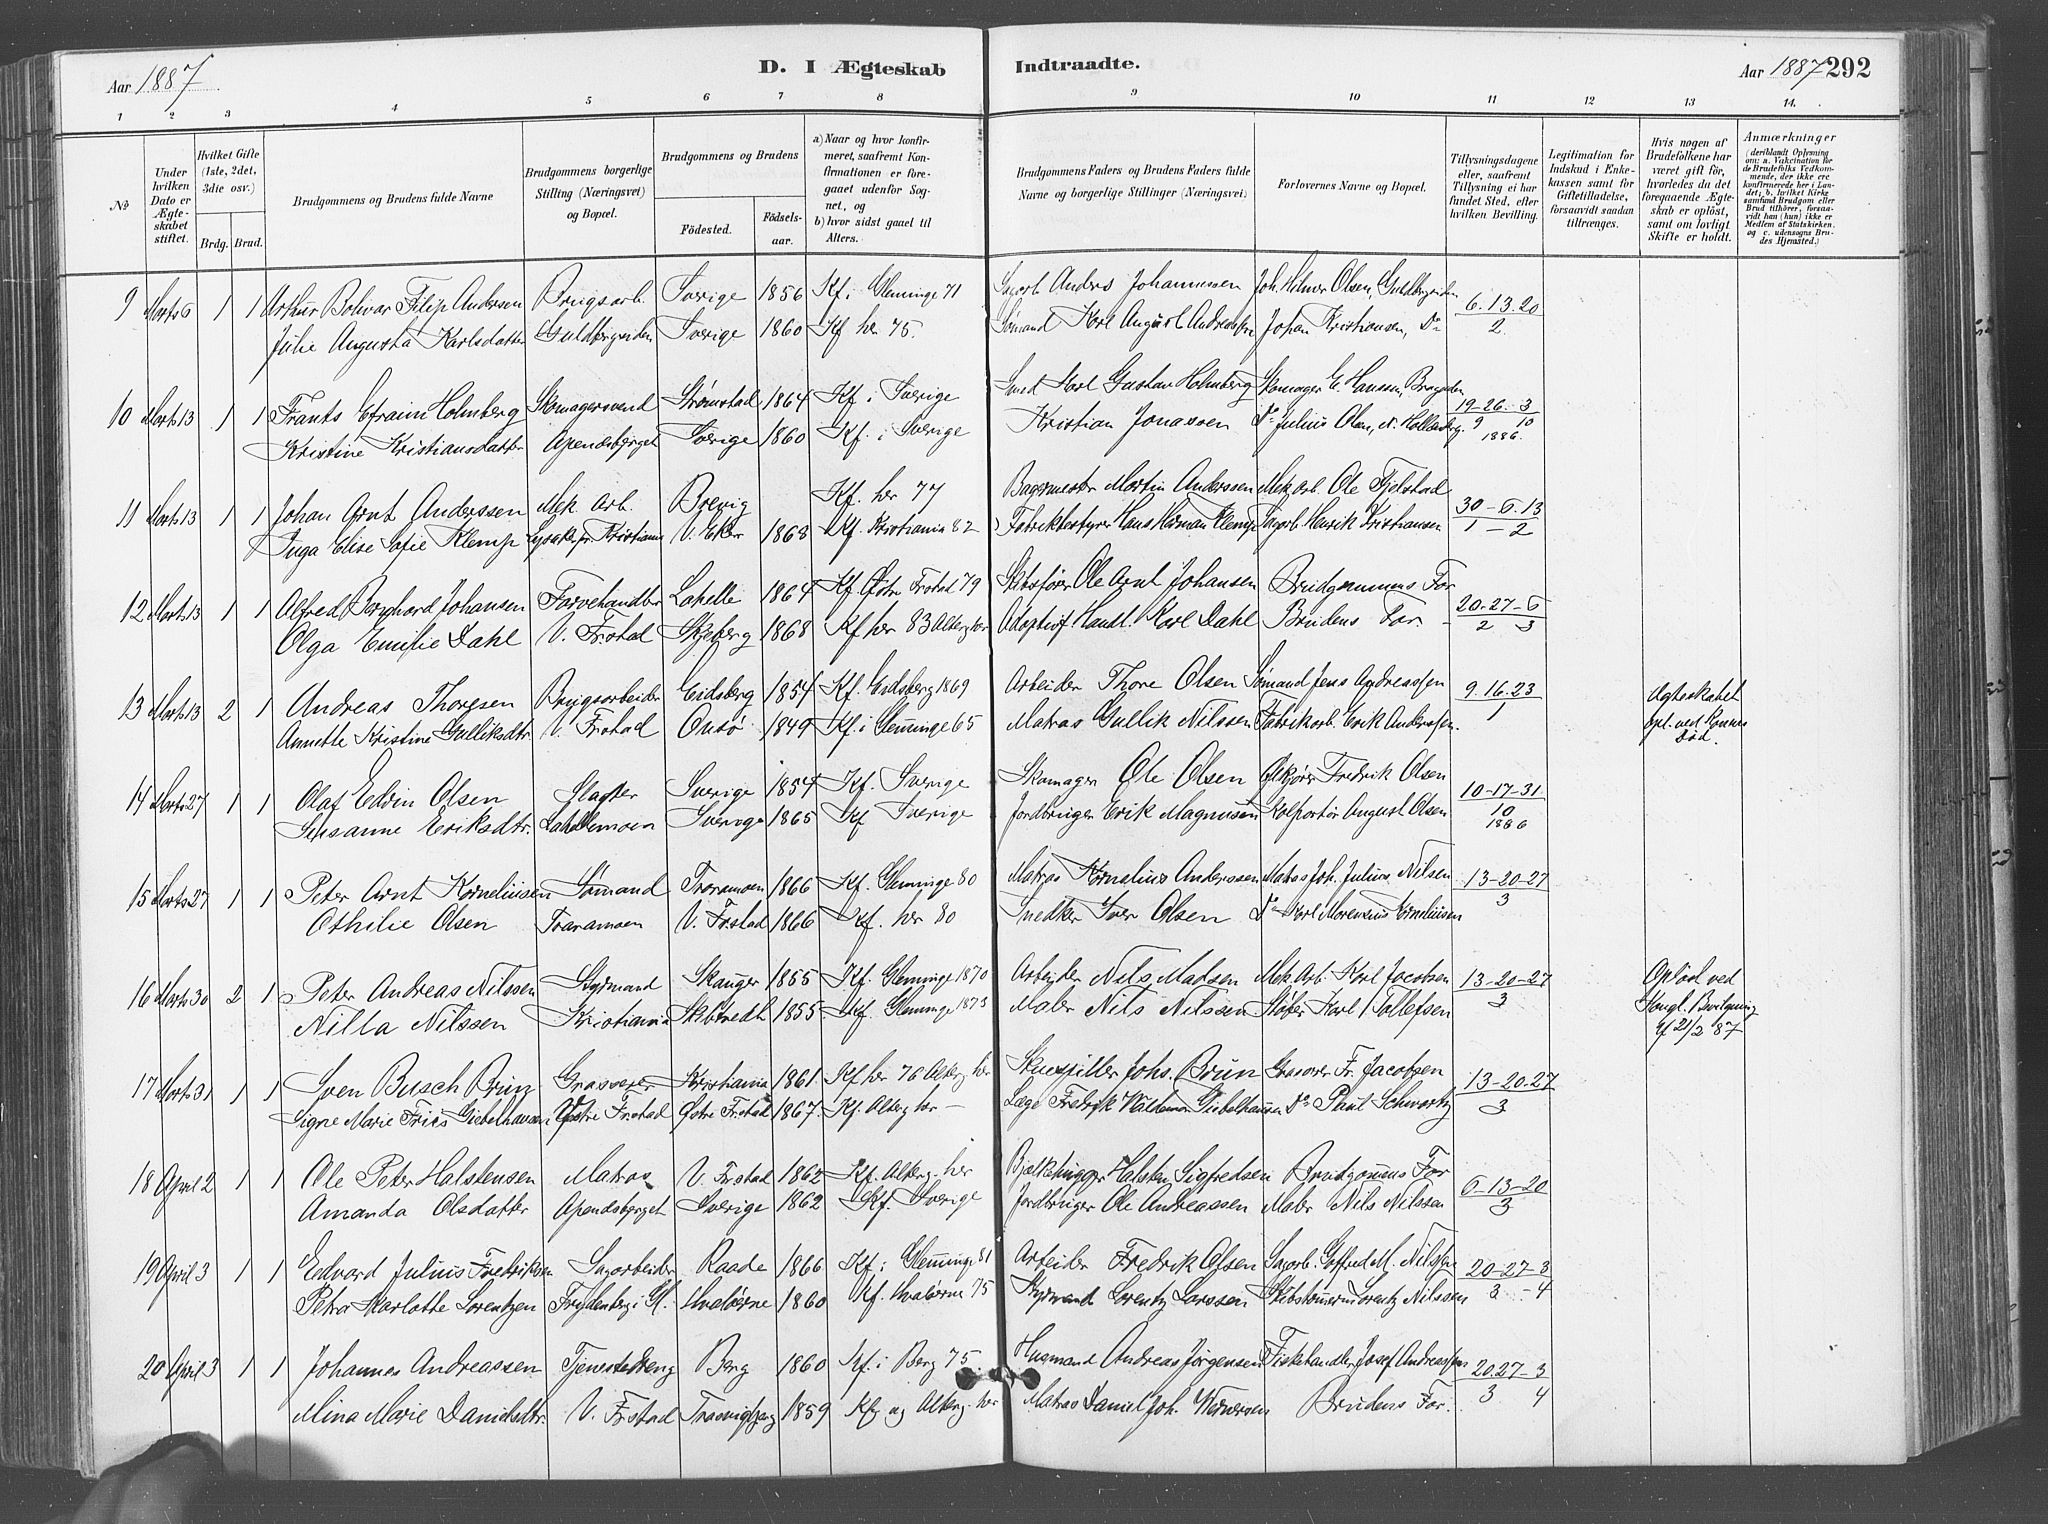 Aar 1887
D. I Ægteskab Indtraadte.
Aar 1887 292
1 2 3 4 5 6 7 8 9 10 11 12 13 14.
No
Under hvilken Dato er Ægteskabet stiftet.
Hvilket Gifte (1ste, 2det, 3die osv.)
Brdg. Brud.
Brudgommens og Brudens fulde Navne
Brudgommens borgerlige Stilling (Næringsvei) og Bopæl.
Brudgommens og Brudens
Födested. Födselsaar.
a) Naar og hvor konfirmeret, saafremt Konfirmationen er foregaaet udenför Sognet, og
b) hvor sidst gaaet til Alters.
Brudgommens Faders og Brudens Faders fulde Navne og borgerlige Stillinger (Næringsvei)
Forlovernes Navne og Bopæl.
Tillysningsdagene eller, saafremt Tillysning ei har fundet Sted, efter hvilken Bevilling.
Legitimation for Indskud i Enkekassen samt for Giftetilladelse, forsaavidt saadan tiltrænges.
Hvis nogen af Brudefolkene har været gift för, hvorledes da det foregaaende Ægteskab er oplöst, samt om lovligt Skifte er holdt.
Anmærkninger
(deriblandt Oplysning om: a. Vakcination for de Brudefolks Vedkommende, der ikke ere konfirmerede her i Landet; b. hvilket Kirkesamfund Brudgom eller Brud tilhörer, forsaavidt han (hun) ikke er Medlem af Statskirken. og c. udensogns Brudes Hjemsted.)
9 Marts 6 1 1 Arthur Bolivar Filip Andersen Brugsarb. Sverige 1856 Kf. i Glemminge 71 Sagarb. Anders Johannessen Joh. Hilmer Olsen, Guldbergsiden 6.13.20
Julie Augusta Karlsdatter Guldbergsiden Sverige 1860 Kf. her 75. Sømand Karl August Andreassen Johan Kristiansen, Do 2
10 Marts 13 1 1 Frants Efraim Holmberg Skomagersvend Strømstad 1864 Kf. i Sverige Smed Karl Gustav Holmberg Skomager E. Hansen, 19-26-3
Kristine Kristiansdatter Apenæsbjerget Sverige 1860 Kf. i Sverige Kristian Jonassen Do Julius Olsen, 9 10
1886.
11 Marts 13 1 1 Johan Arnt Anderssen Mek. Arb. Brevig Kf. her 77 Bagermester Martin Anderssen Mek. Arb. Ole Fjelstad 30-6.13
Inga Elise Sofie Klemp Lysaker pr. Kristiania V. Eker 1868 Kf. Kristiania 82 Fabrikbestyrer Hans Herman Klemp Sagarb. Henrik Kristiansen 1-2
12 Marts 13 1 1 Alfred Bernhard Johansen Farvehandler Lahelle 1864 Kf. Østre Frstad 79 Skibsfører Ole Arnt Johansen Brudgommens Far 20-27-6
Olga Emilie Dahl V. Frstad Skjeberg 1868 Kf her 83 Alterg. her Adoptivf. Handl. Karl Dahl Brudens Far. 2 3
13 Marts 13 2 1 Andreas Thoresen Brugsarbeider Eidsberg 1854 Kf. Eidsberg 1869 Arbeider Thore Olsen Sømand Jens Andreassen 9.16.23 Ægteskabet
Annette Kristine Gulliksdtr. V. Frstad Onsø 1849 Kf. i Glemminge 65 Matros Gullik Nilssen Fabrikarb. Erik Anderssen. 1 opl. ved Konens Død.
14 Marts 27 1 1 Olaf Edvin Olsen Slagter Sverige 1854 Kf. Sverige Skomager Ole Olsen Ølkjører Fredrik Olsen 10-17-31
Susanne Eriksdtr. Lahellemoen Sverige 1865 Kf Sverige Jordbruger Erik Magnusen Kolportør August Olsen 10
1886
15 Marts 27 1 1 Peter Arnt Korneliussen Sømand Traramoen 1866 Kf. Glemminge 80 Matros Kornelius Anderssen Matros Joh. Julius Nilsen 13-20-27
Othilie Olsen Traramoen V. Frstad 1866 Kf. her 80 Snedker Iver Olsen Do Karl Korneliusen 3
16 Marts 30 2 1 Peter Andreas Nilssen Styrmand Skauger 1855 Kf. Glemminge 1870 Arbeider Nils Madsen Mek. Arb. Karl Jacobsen 13-20-27 Opløst ved
Nilla Nilssen Kristiania Skibtvedt 1855 Kf. Glemminge 1873 Maler Nils Nilssen Støber Karl Tollefsen 3 Kongl. Bevilgning
af 21/2 87
17 Marts 31 1 1 Sven Busch Brun Grosserer Kristiania 1861 Kf her 76 Alterg. her Skuespiller Johs. Brun Grosserer Fr. Jacobsen 13-20-27
Signe Marie Friis Giebelhausen Østre Frstad Østre Frstad 1867 Kf. Alterg. her Læge Fredrik Valdemar Giebelhausen Do Paul Schwartz 3
18 April 2 1 1 Ole Peter Halstensen Matros V. Frstad 1862 Kf. Alterg. her Bjelkehugger Halsten Sigfredsen Brudgommens Far 6-13-20
Amanda Olsdatter Apenæsbjerget Sverige 1862 Kf. Sverige Jordbruger Ole Andreassen Maler Nils Nilssen 3
19 April 3 1 1 Edvard Julius Fredriksen Sagarbeider Raade 1866 Kf. i Glemminge 81 Arbeider Fredrik Olsen Sagarb. Gotfred M. Nilssen 20-27-3
Petra Karlotte Lorentzen Frydenberg i Gl. Hvaløerne 1860 Kf. Hvaløerne 75 Styrmand Lorentz Larssen Skibstømmerm Lorentz Nilssen 3-4
20 April 3 1 1 Johannes Andreassen Tjenestedreng Berg 1860 Kf. i Berg 75 Husmand Andreas Jørgensen Fiskehandler Josef Andreassen 20.27-3
Mina Marie Danielsdtr. V. Frstad 1859 Kf og Alterg. her Matros Daniel Joh. Wernersen Brudens Far. 3 4